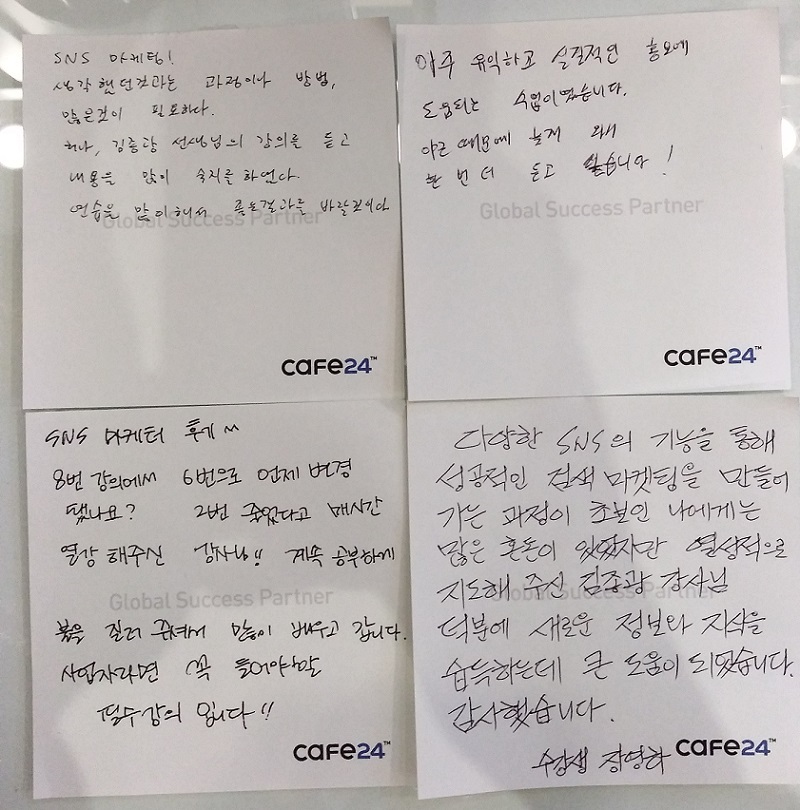 SNS 마케팅!
생각했던것과는 과정이나 방법,
많은것이 필요하다.
허나, 김종광 선생님의 강의를 듣고
내용을 많이 숙지를 하였다.
연습을 많이해서 좋은결과를 바랄것이다
Global Success Partner
cafe24™
아주 유익하고 실질적인 홍보에
도움되는 수업이였습니다.
야근 때문에 늦게 와서
한 번 더 듣고 싶습니다!
Global Success Partner
cafe24™
SNS 마케터 후기~
8번 강의에서 6번으로 언제 변경
됐나요? 2번 줄었다고 매시간
열강 해주신 강사님!! 계속 공부하게
Global Success Partner
불을 질러 주셔서 많이 배우고 갑니다.
사업자라면 꼭 들어야할
필수강의 입니다!!
cafe24™
다양한 SNS의 기능을 통해
성공적인 검색 마켓팅을 만들어
가는 과정이 초보인 나에게는
많은 혼돈이 있었지만 열성적으로
지도해 주신 김종광 강사님
덕분에 새로운 정보와 지식을
습득하는데 큰 도움이 되었습니다.
감사했습니다.
수강생 장영하
cafe24™